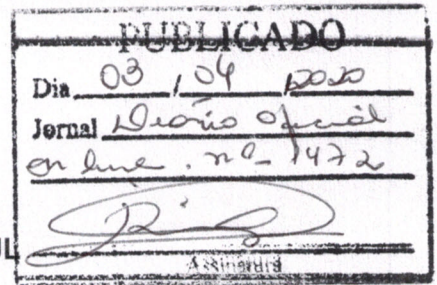 PUBLICADO
Dia 03 / 04 / 2020
Jornal Diário Oficial
on line . nº 1472
UL
Assinatura